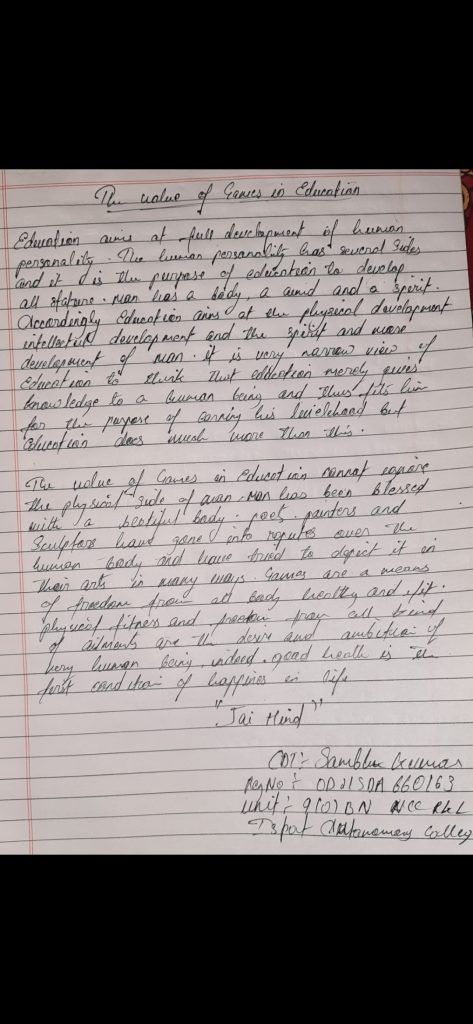 The value of Games in Education
Education aims at full development of human
personality. The human personality has several sides
and it is the purpose of education to develop
all nature. man has a body, a mind and a spirit.
Accordingly Education aims at the physical development
intellectul development and the spirit and more
development of man. it is very narrow view of
Education to think that education merely gives
knowledge to a human being and thus fits him
for the purpose of earning his livielehood but
Education does much more than this.
The value of Games in Education cannot ignore
the physical side of man. Man has been blessed
with a beutiful body. poets, painters and
Sculptors have gone into over the
human body and have tried to depict it in
their arts in many ways. Games are a means
of freedom from all body healthy and fit.
physical fitness and freedom from all kind
of ailments are the desire and ambition of
very human being, indeed. good health is the
first condition of happines in life
"Jai Hind"
CDT:- Sambhu Kumar
Reg No:- OD21SDA660163
Unit:- 9(O) BN NCC RKL
Ispat Autonomous College